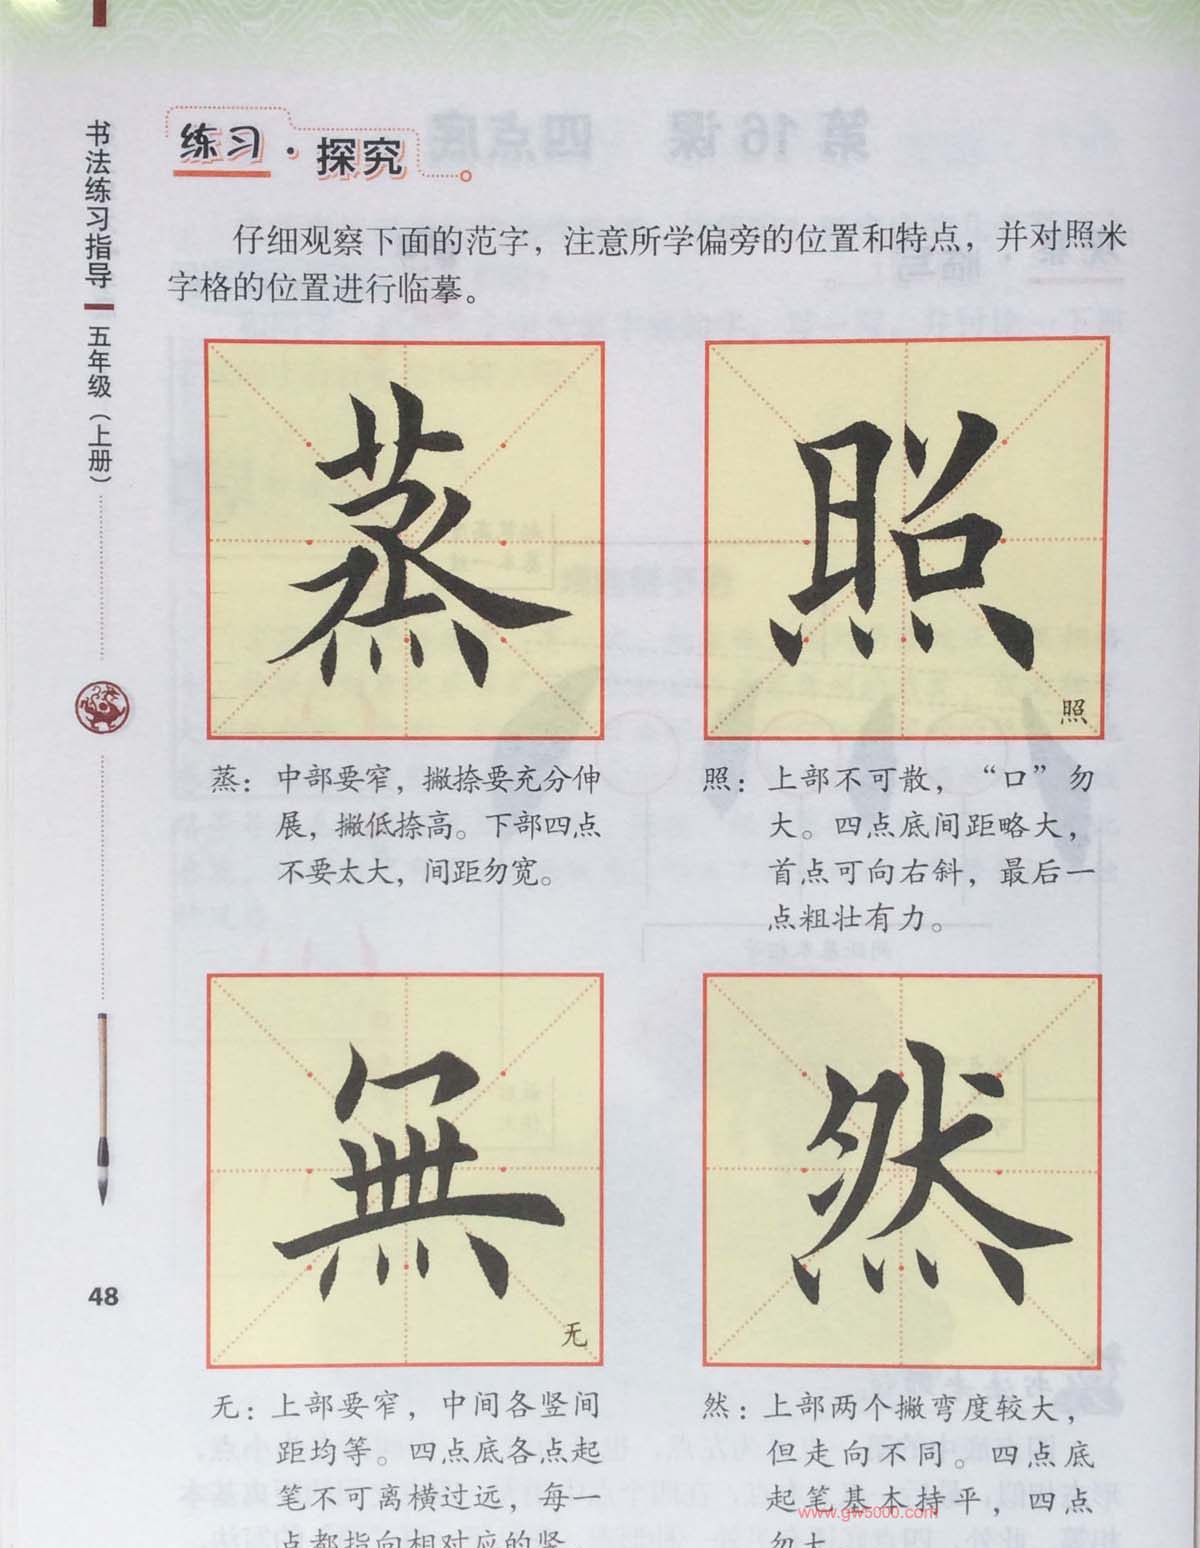 练习·探究
仔细观察下面的范字，注意所学偏旁的位置和特点，并对照米
字格的位置进行临摹。
蒸
照
照
蒸：中部要窄，撇捺要充分伸
展，撇低捺高。下部四点
不要太大，间距勿宽。
照：上部不可散，“口”勿
大。四点底间距略大，
首点可向右斜，最后一
点粗壮有力。
無
无
然
无：上部要窄，中间各竖间
距均等。四点底各点起
笔不可离横过远，每一
点都指向相对应的竖。
然：上部两个撇弯度较大，
但走向不同。四点底
起笔基本持平，四点
勿大。
书法练习指导
五年级（上册）
48
www.gw5000.com